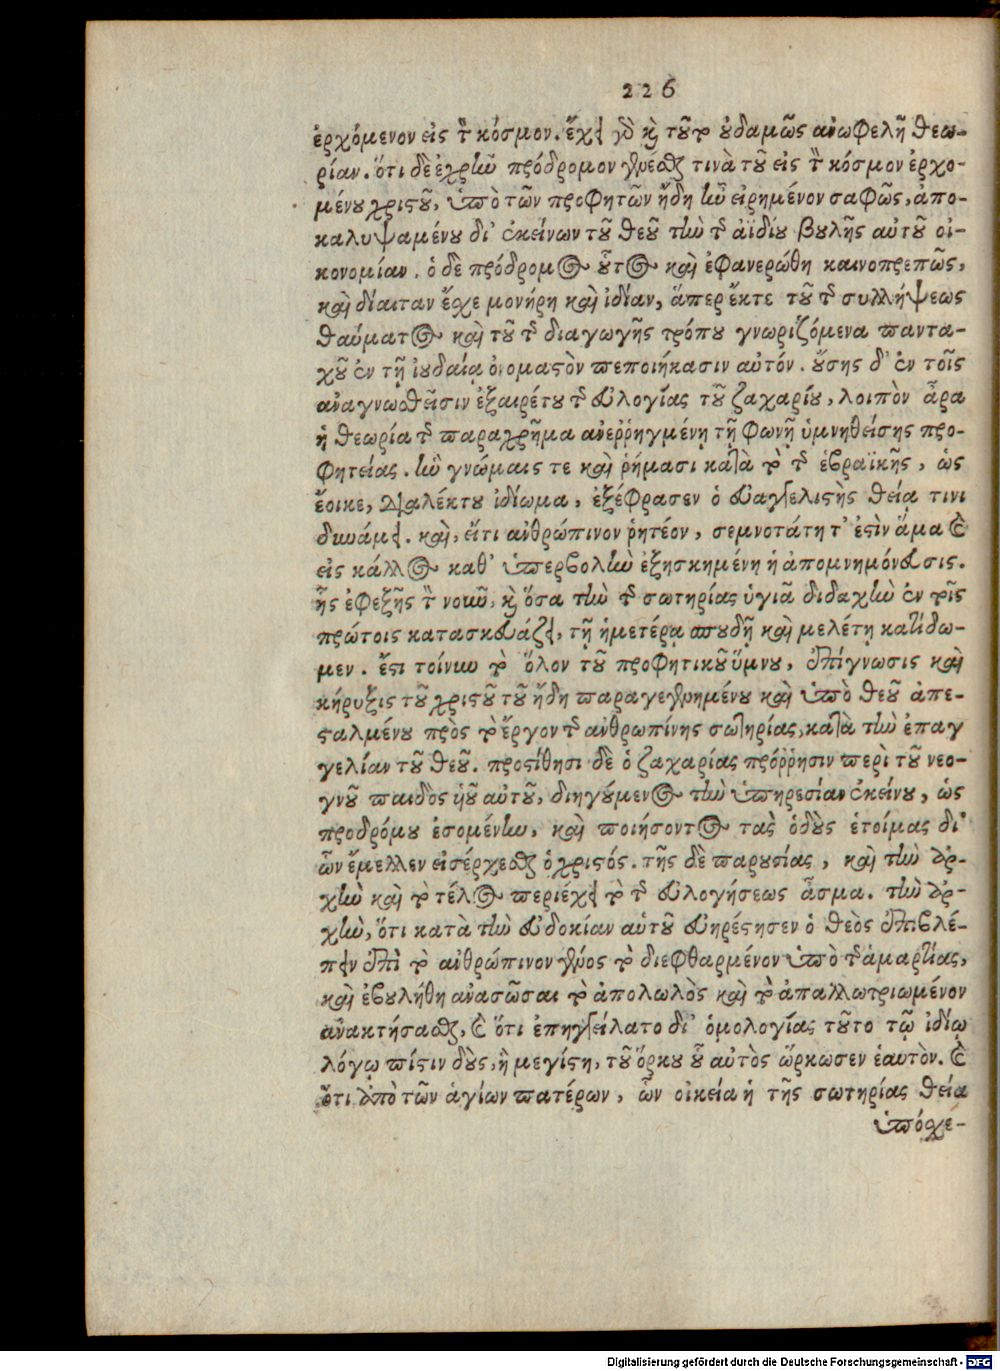 226
ἐρχόμενον εἰς τὸν κόσμον. ἔχει γὸ καὶ τοῦτο οὐδαμῶς ἀνωφελῆ θεω-
ρίαν. ὅτι δὲ ἐχρῆν πρόδρομον γενέσθαι τινὰ τοῦ εἰς τὸν κόσμον ἐρχο-
μένου χριστοῦ, ὑπὸ τῶν προφητῶν ἤδη ἦν εἰρημένον σαφῶς, ἀπο-
καλυψαμένου δι' ἐκείνων τοῦ θεοῦ τὴν τῆς ἀϊδίου βουλῆς αὐτοῦ οἰ-
κονομίαν. ὁ δὲ πρόδρομος οὗτος καὶ ἐφανερώθη καινοπρεπῶς,
καὶ δίαιταν ἔσχε μονήρη καὶ ἰδίαν, ἅπερ ἔκτε τοῦ τῆς συλλήψεως
θαύματος καὶ τοῦ τῆς διαγωγῆς τρόπου γνωριζόμενα παντα-
χοῦ ἐν τῇ ἰουδαίᾳ ὀνομαστὸν πεποιήκασιν αὐτόν. οὔσης δ' ἐν τοῖς
ἀναγνωσθεῖσιν ἐξαιρέτου τῆς εὐλογίας τοῦ ζαχαρίου, λοιπὸν ἆρα
ἡ θεωρία τῆς παραχρῆμα ἀνεῤῥηγμένῃ τῇ φωνῇ ὑμνηθείσης προ-
φητείας. ἣν γνώμαις τε καὶ ῥήμασι κατὰ τὸ τῆς ἑβραϊκῆς, ὡς
ἔοικε, διαλέκτου ἰδίωμα, ἐξέφρασεν ὁ εὐαγγελιστὴς θείᾳ τινι
δυνάμει. καὶ, εἴτι ἀνθρώπινον ῥητέον, σεμνοτάτη τ' ἐστὶν ἅμα καὶ
εἰς κάλλος καθ' ὑπερβολὴν ἐξησκημένη ἡ ἀπομνημόνευσις.
ἧς ἐφεξῆς τὸν νοῦν, καὶ ὅσα τὴν τῆς σωτηρίας ὑγιᾶ διδαχὴν ἐν τοῖς
πρώτοις κατασκευάζει, τῇ ἡμετέρᾳ σπουδῇ καὶ μελέτῃ κατίδω-
μεν. ἔστι τοίνυν τὸ ὅλον τοῦ προφητικοῦ ὕμνου, ἐπίγνωσις καὶ
κήρυξις τοῦ χριστοῦ τοῦ ἤδη παραγεγενημένου καὶ ὑπὸ θεοῦ ἀπε-
σταλμένου πρὸς τὸ ἔργον τῆς ἀνθρωπίνης σωτηρίας, κατὰ τὴν ἐπαγ
γελίαν τοῦ θεοῦ. προστίθησι δὲ ὁ ζαχαρίας πρόῤῥησιν περὶ τοῦ νεο-
γνοῦ παιδὸς ὑοῦ αὐτοῦ, διηγούμενος τὴν ὑπηρεσίαν ἐκείνου, ὡς
προδρόμου ἐσομένην, καὶ ποιήσοντος τὰς ὁδοὺς ἑτοίμας δι'
ὧν ἔμελλεν εἰσέρχεσθαι ὁ χριστός. τῆς δὲ παρουσίας, καὶ τὴν ἀρ-
χὴν καὶ τὸ τέλος περιέχει τὸ τῆς εὐλογήσεως ᾆσμα. τὴν ἀρ-
χὴν, ὅτι κατὰ τὴν εὐδοκίαν αὑτοῦ εὐηρέστησεν ὁ θεὸς ἐπιβλέ-
πειν ἐπὶ τὸ ἀνθρώπινον γένος τὸ διεφθαρμένον ὑπὸ τῆς ἁμαρτίας,
καὶ ἐβουλήθη ἀνασῶσαι τὸ ἀπολωλὸς καὶ τὸ ἀπαλλωτριωμένον
ἀνακτήσασθαι, καὶ ὅτι ἐπηγγείλατο δι' ὁμολογίας τοῦτο τῷ ἰδίῳ
λόγῳ πίστιν δοὺς, ἢ μεγίστη, τοῦ ὅρκου οὗ αὐτὸς ὥρκωσεν ἑαυτὸν. καὶ
ὅτι ἀπὸ τῶν ἁγίων πατέρων, ὧν οἰκεία ἡ τῆς σωτηρίας θεία
ὑπόσχε-
Digitalisierung gefördert durch die Deutsche Forschungsgemeinschaft - DFG